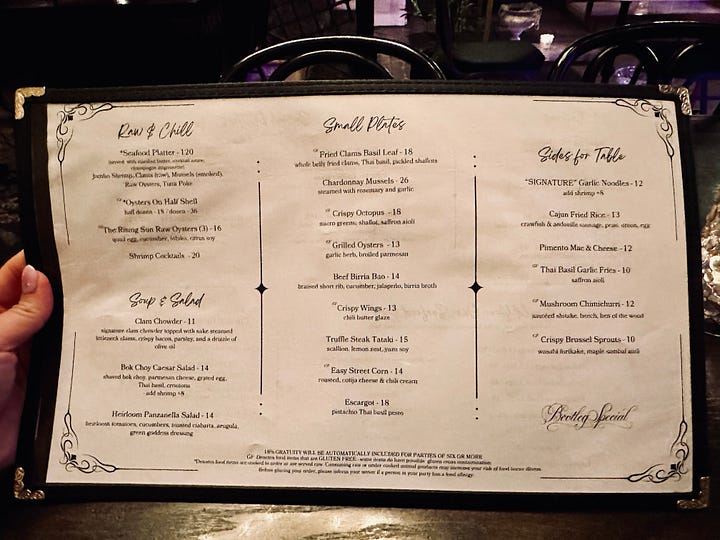 Raw & Chill
*Seafood Platter - 120
Jumbo Shrimp, Clams (raw), Mussels (smoked),
Raw Oysters, Tuna Poke
GF *Oysters On Half Shell
half dozen - 18 / dozen - 36
The Rising Sun Raw Oysters (3) - 16
quail egg, cucumber, citrus soy
Shrimp Cocktails - 20
Soup & Salad
Clam Chowder - 11
signature clam chowder topped with sake steamed
littleneck clams, crispy bacon, parsley, and a drizzle of
olive oil
Bok Choy Caesar Salad - 14
shaved bok choy, parmesan cheese, grated egg,
Thai basil, croutons
add shrimp +8
Heirloom Panzanella Salad - 14
heirloom tomatoes, cucumbers, toasted ciabatta, arugula,
green goddess dressing
Small Plates
GF Fried Clams Basil Leaf - 18
whole belly fried clams, Thai basil, pickled shallots
Chardonnay Mussels - 26
steamed with rosemary and garlic
GF Crispy Octopus - 18
micro greens, shallot, saffron aioli
GF Grilled Oysters - 13
garlic herb, broiled parmesan
Beef Birria Bao - 14
braised short rib, cucumber, jalapeño, birria broth
GF Crispy Wings - 13
chili butter glaze
Truffle Steak Tataki - 15
scallion, lemon zest, yuzu soy
GF Easy Street Corn - 14
roasted, cotija cheese & chili cream
Escargot - 18
pistachio Thai basil pesto
Sides for Table
"SIGNATURE" Garlic Noodles - 12
add shrimp +8
Cajun Fried Rice - 13
crawfish & andouille sausage, peas, onion, egg
Pimento Mac & Cheese - 12
GF Thai Basil Garlic Fries - 10
saffron aioli
GF Mushroom Chimichurri - 12
sautéed shiitake, beech, hen of the wood
GF Crispy Brussel Sprouts - 10
wasabi furikake, maple sambal aioli
Bootleg Special
18% GRATUITY WILL BE AUTOMATICALLY INCLUDED FOR PARTIES OF SIX OR MORE
GF Denotes food items that are GLUTEN FREE - some items do have possible gluten cross contamination
*Denotes food items are cooked to order or are served raw. Consuming raw or under cooked animal products may increase your risk of food-borne illness.
Before placing your order, please inform your server if a person in your party has a food allergy.